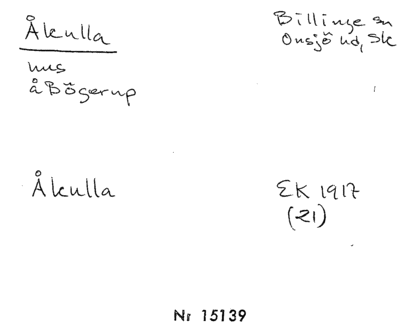 Åkulla
Billinge sn
Onsjö hd, Sk
hus
å Bögerup
Åkulla
EK 1917
(21)
Nr 15139